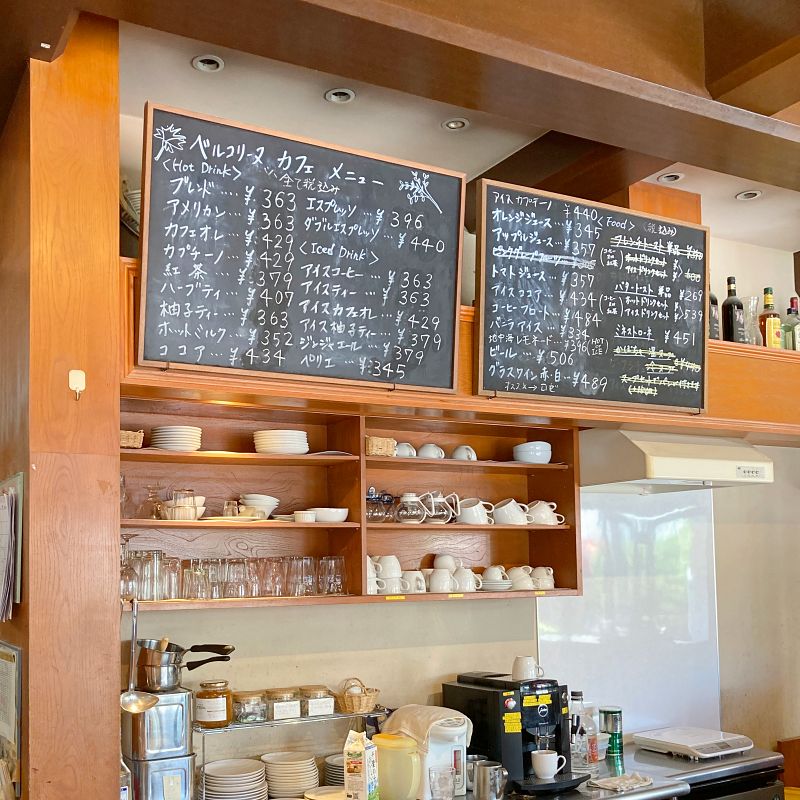 ベルコリーヌ カフェ メニュー
<Hot Drink> ※全て税込み
ブレンド … ¥363
アメリカン … ¥363
カフェオレ … ¥429
カプチーノ … ¥429
紅茶 … ¥379
ハーブティ … ¥407
柚子ティー … ¥363
ホットミルク … ¥352
ココア … ¥434
エスプレッソ … ¥396
ダブルエスプレッソ … ¥440
<Iced Drink>
アイスコーヒー … ¥363
アイスティー … ¥363
アイスカフェオレ … ¥429
アイス柚子ティー … ¥379
ジンジャエール … ¥379
ペリエ … ¥345
アイスカプチーノ ¥440
オレンジジュース … ¥345
アップルジュース … ¥357
トマトジュース … ¥357
アイスココア … ¥434
コーヒーフロート … ¥484
バニラアイス … ¥334
地中海レモネード … ¥396 HOT ICE
ビール … ¥506
グラスワイン 赤・白 … ¥489
オススメ→ロゼ
<Food> <税込み>
フレンチトースト 単品
ホットドリンクセット
アイスドリンクセット
バタートースト 単品 ¥269
ホットドリンクセット
アイスドリンクセット >¥539
ミネストローネ ¥451